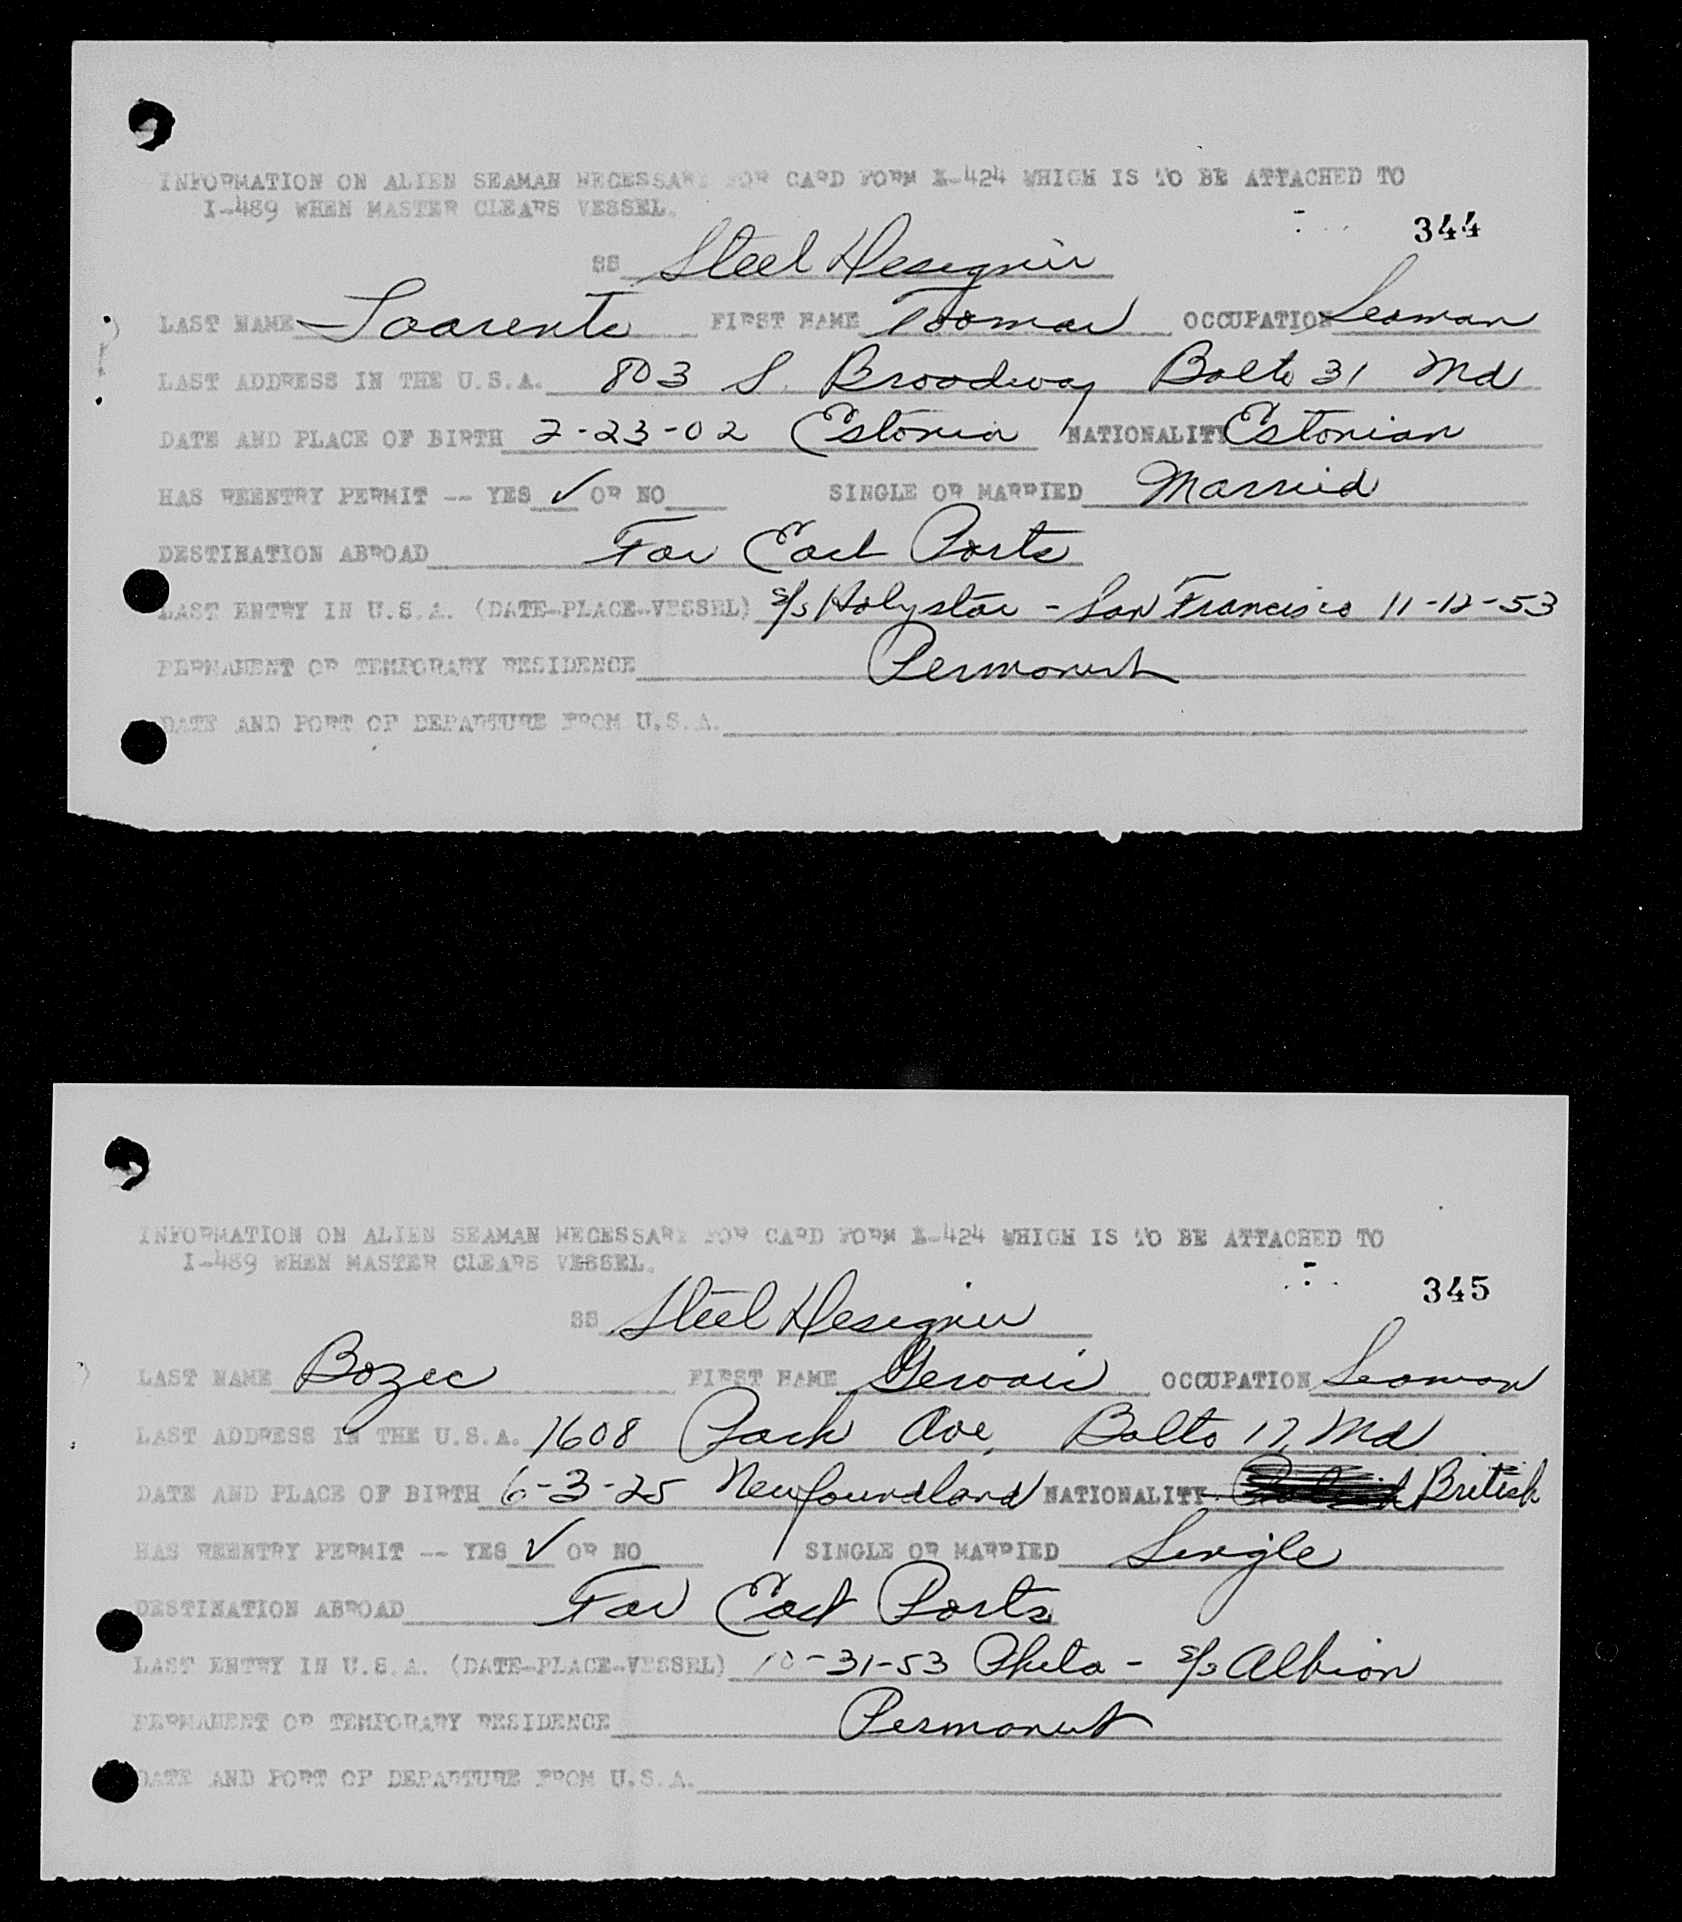 INFORMATION ON ALIEN SEAMAN NECESSARY FOR CARD FORM I-424 WHICH IS TO BE ATTACHED TO
I-489 WHEN MASTER CLEARS VESSEL.
344
SS Steel Designer
LAST NAME Saarents FIRST NAME Toomas OCCUPATION Seaman
LAST ADDRESS IN THE U.S.A. 803 S. Broadway Balto 31 Md
DATE AND PLACE OF BIRTH 2-23-02 Estonia NATIONALITY Estonian
HAS REENTRY PERMIT -- YES ✓ OR NO SINGLE OR MARRIED Married
DESTINATION ABROAD Far East Ports
LAST ENTRY IN U.S.A. (DATE-PLACE-VESSEL) S/S Holystar - San Francisco 11-12-53
PERMANENT OR TEMPORARY RESIDENCE Permanent
DATE AND PORT OF DEPARTURE FROM U.S.A.
INFORMATION ON ALIEN SEAMAN NECESSARY FOR CARD FORM I-424 WHICH IS TO BE ATTACHED TO
I-489 WHEN MASTER CLEARS VESSEL.
345
SS Steel Designer
LAST NAME Bozec FIRST NAME Gervais OCCUPATION Seaman
LAST ADDRESS IN THE U.S.A. 1608 Park Ave, Balto 17, Md
DATE AND PLACE OF BIRTH 6-3-25 Newfoundland NATIONALITY British
HAS REENTRY PERMIT -- YES ✓ OR NO SINGLE OR MARRIED Single
DESTINATION ABROAD Far East Ports
LAST ENTRY IN U.S.A. (DATE-PLACE-VESSEL) 10-31-53 Phila - S/S Albion
PERMANENT OR TEMPORARY RESIDENCE Permanent
DATE AND PORT OF DEPARTURE FROM U.S.A.